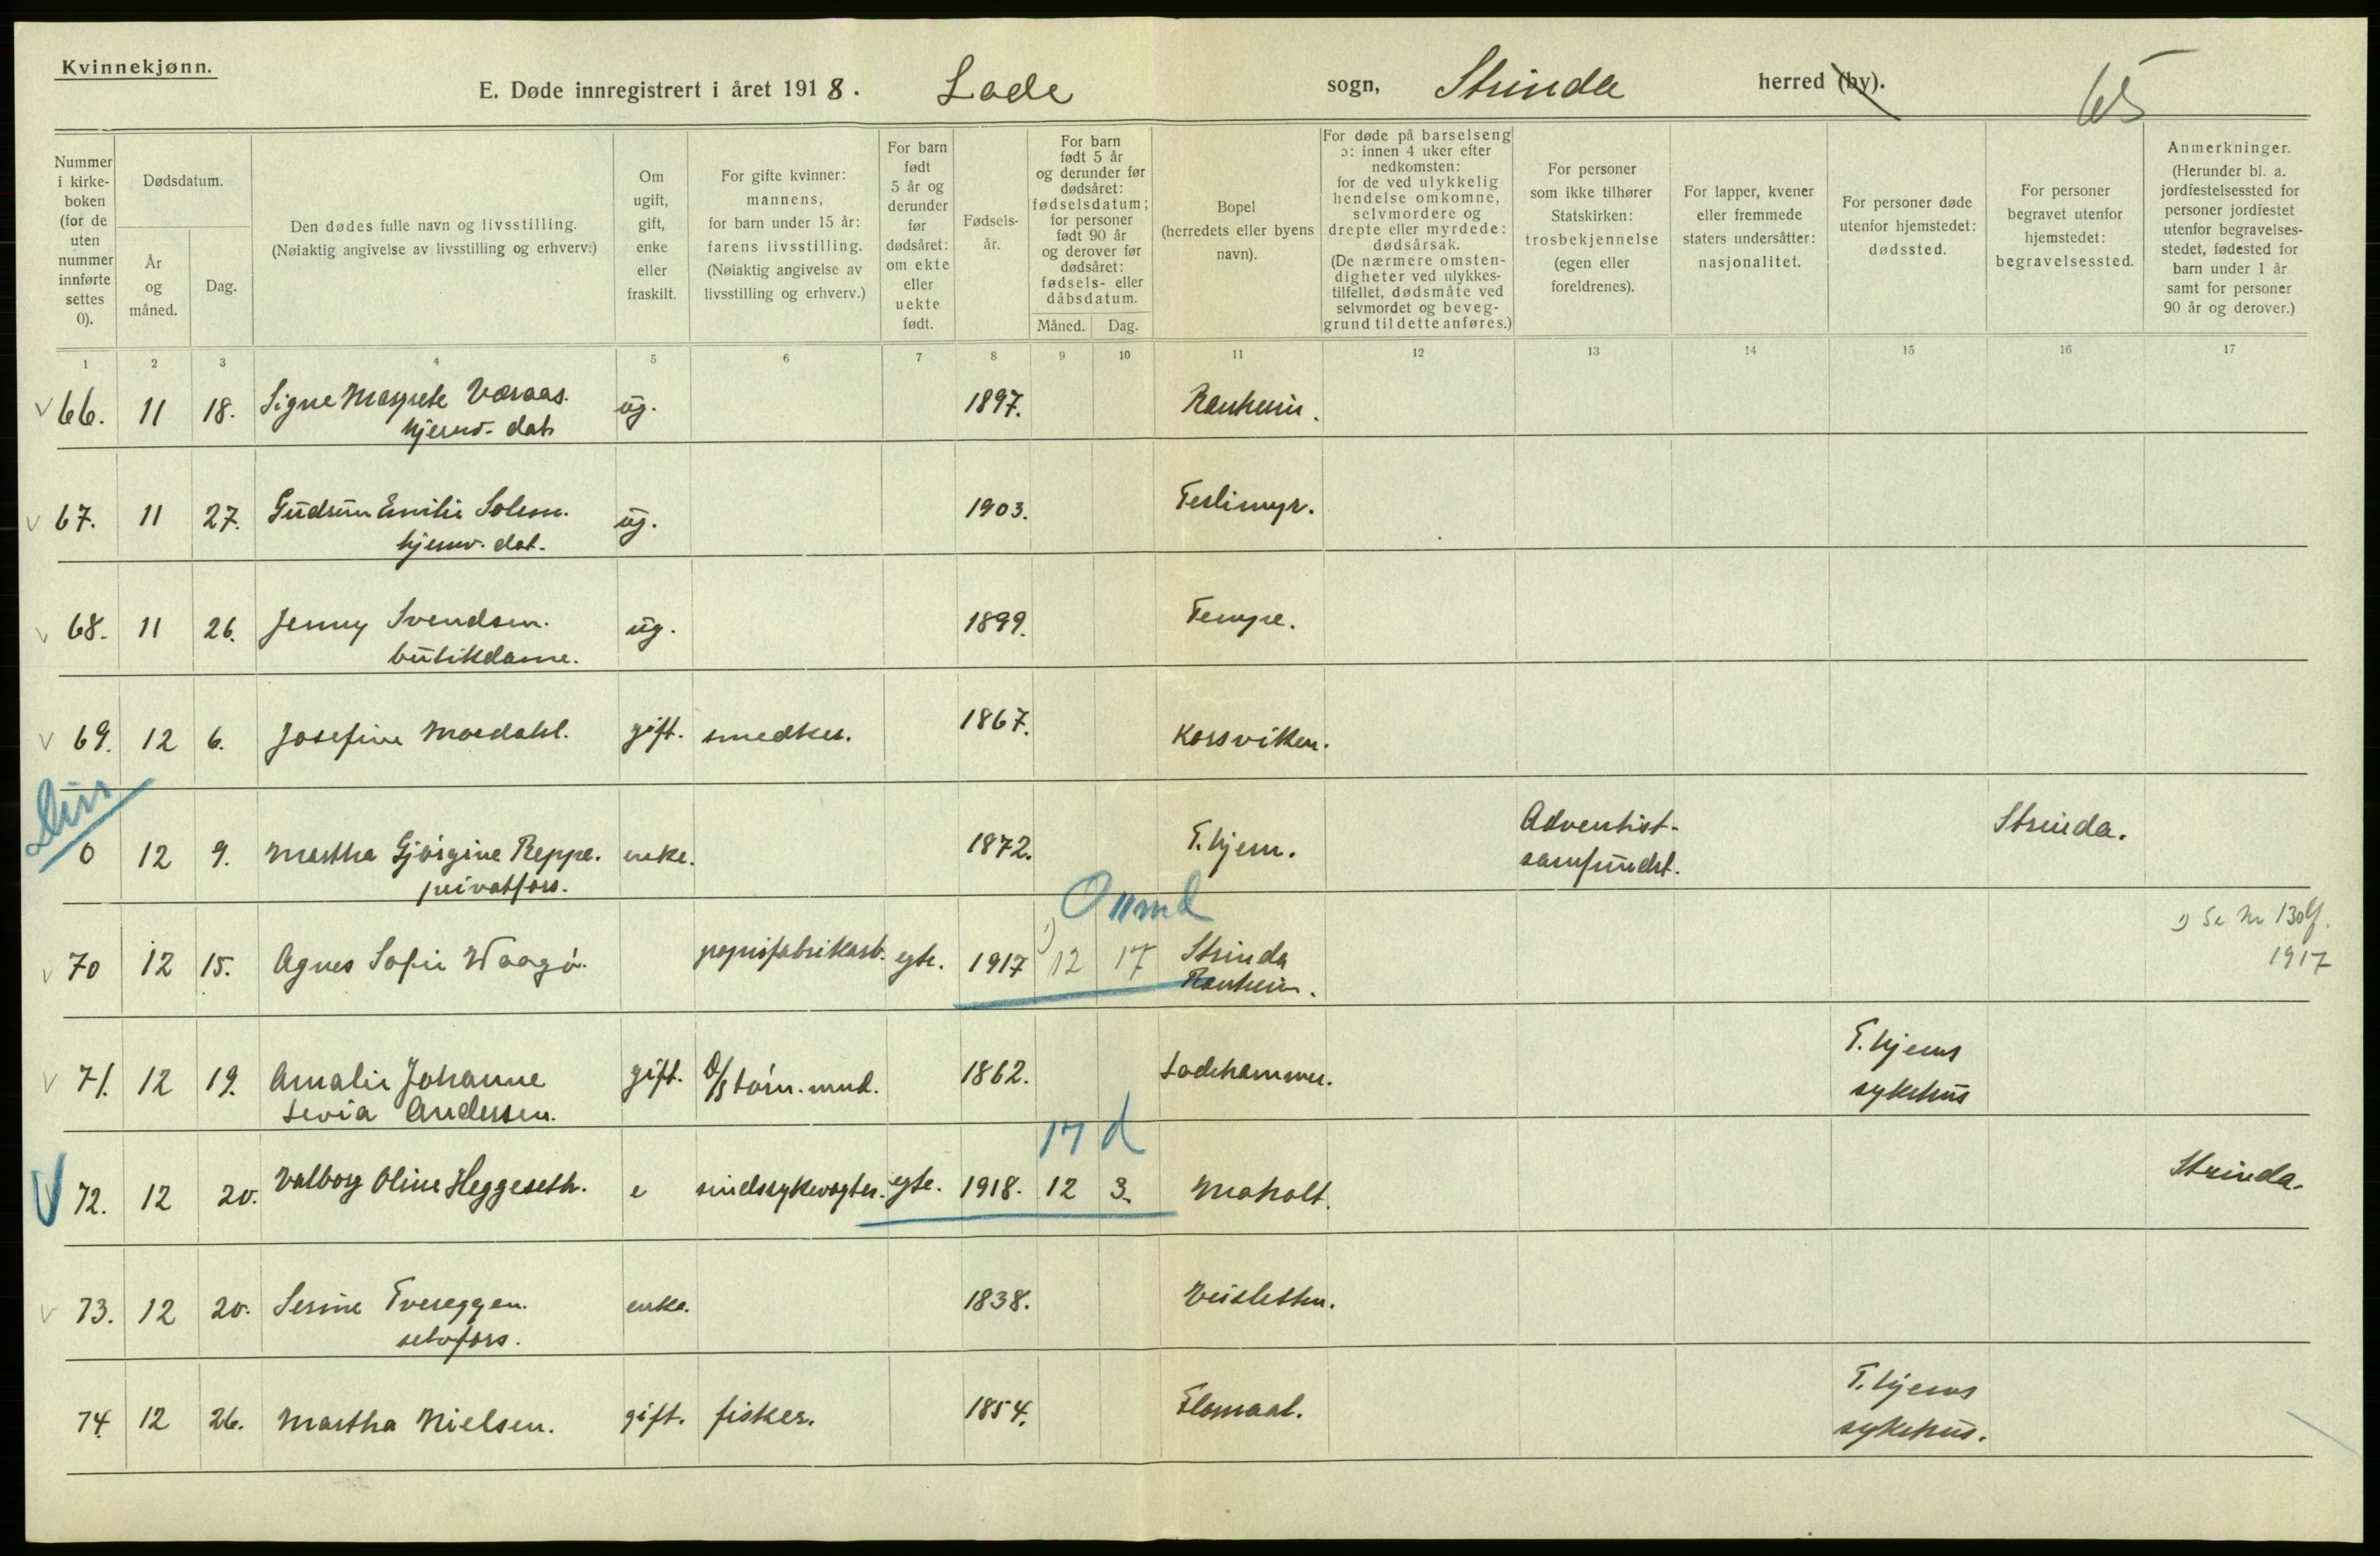 Kvinnekjønn.
E. Døde innregistrert i året 1918. Lade sogn, Strinda herred (by).
65
Nummer i kirke-boken (for de uten nummer innførte settes 0).
Dødsdatum.
År og måned.
Dag.
Den dødes fulle navn og livsstilling.
(Nøiaktig angivelse av livsstilling og erhverv.)
Om ugift, gift, enke eller fraskilt.
For gifte kvinner: mannens, for barn under 15 år: farens livsstilling. (Nøiaktig angivelse av livsstilling og erhverv.)
For barn født 5 år og derunder før dødsåret: om ekte eller uekte født.
Fødsels-år.
For barn født 5 år og derunder før dødsåret: fødselsdatum; for personer født 90 år og derover før dødsåret: fødsels- eller dåbsdatum.
Måned. Dag.
Bopel (herredets eller byens navn).
For døde på barselseng ɔ: innen 4 uker efter nedkomsten: for de ved ulykkelig hendelse omkomne, selvmordere og drepte eller myrdede: dødsårsak. (De nærmere omsten-digheter ved ulykkes-tilfellet, dødsmåte ved selvmordet og beveg-grund til dette anføres.)
For personer som ikke tilhører Statskirken: trosbekjennelse (egen eller foreldrenes).
For lapper, kvener eller fremmede staters undersåtter: nasjonalitet.
For personer døde utenfor hjemstedet: dødssted.
For personer begravet utenfor hjemstedet: begravelsessted.
Anmerkninger. (Herunder bl. a. jordfestelsessted for personer jordfestet utenfor begravelses-stedet, fødested for barn under 1 år samt for personer 90 år og derover.)
1 2 3 4 5 6 7 8 9 10 11 12 13 14 15 16 17
66. 11 18. Signe Margrete Væraas. ug. 1897. Ranheim.
hjemv. dat.
67. 11 27. Gudrun Emilie Solem. ug. 1903. Teslimyr.
hjemv. dat.
68. 11 26. Jenny Svendsen. ug. 1899. Tempe.
butikdame.
69. 12 6. Josefine Moedahl. gift. smedker. 1867. Korsviken.
Diss
0 12 9. Martha Gjørgine Reppe. enke. 1872. T.hjem. Adventist- Strinda.
privatfors. samfundet.
0 11 md
70 12 15. Agnes Sofie Waagø. papirfabrikarb. egte. 1917 1) 12 17 Strinda 1) Se nr 130 lf.
Ranheim. 1917
71. 12 19. Amalie Johanne gift. d/s tøm. mnd. 1862. Ladehammer. T.hjems
Levia Andersen. sykehus
17 d
72. 12 20. Valborg Oline Heggeseth. e sindssykevogter. egte. 1918. 12 3. Moholt. Strinda.
73. 12 20. Serine Tvereggen. enke. 1838. Veisletten.
selvfors.
74. 12 26. Martha Nielsen. gift. fisker. 1854. Flomaal. T.hjems
sykehus.